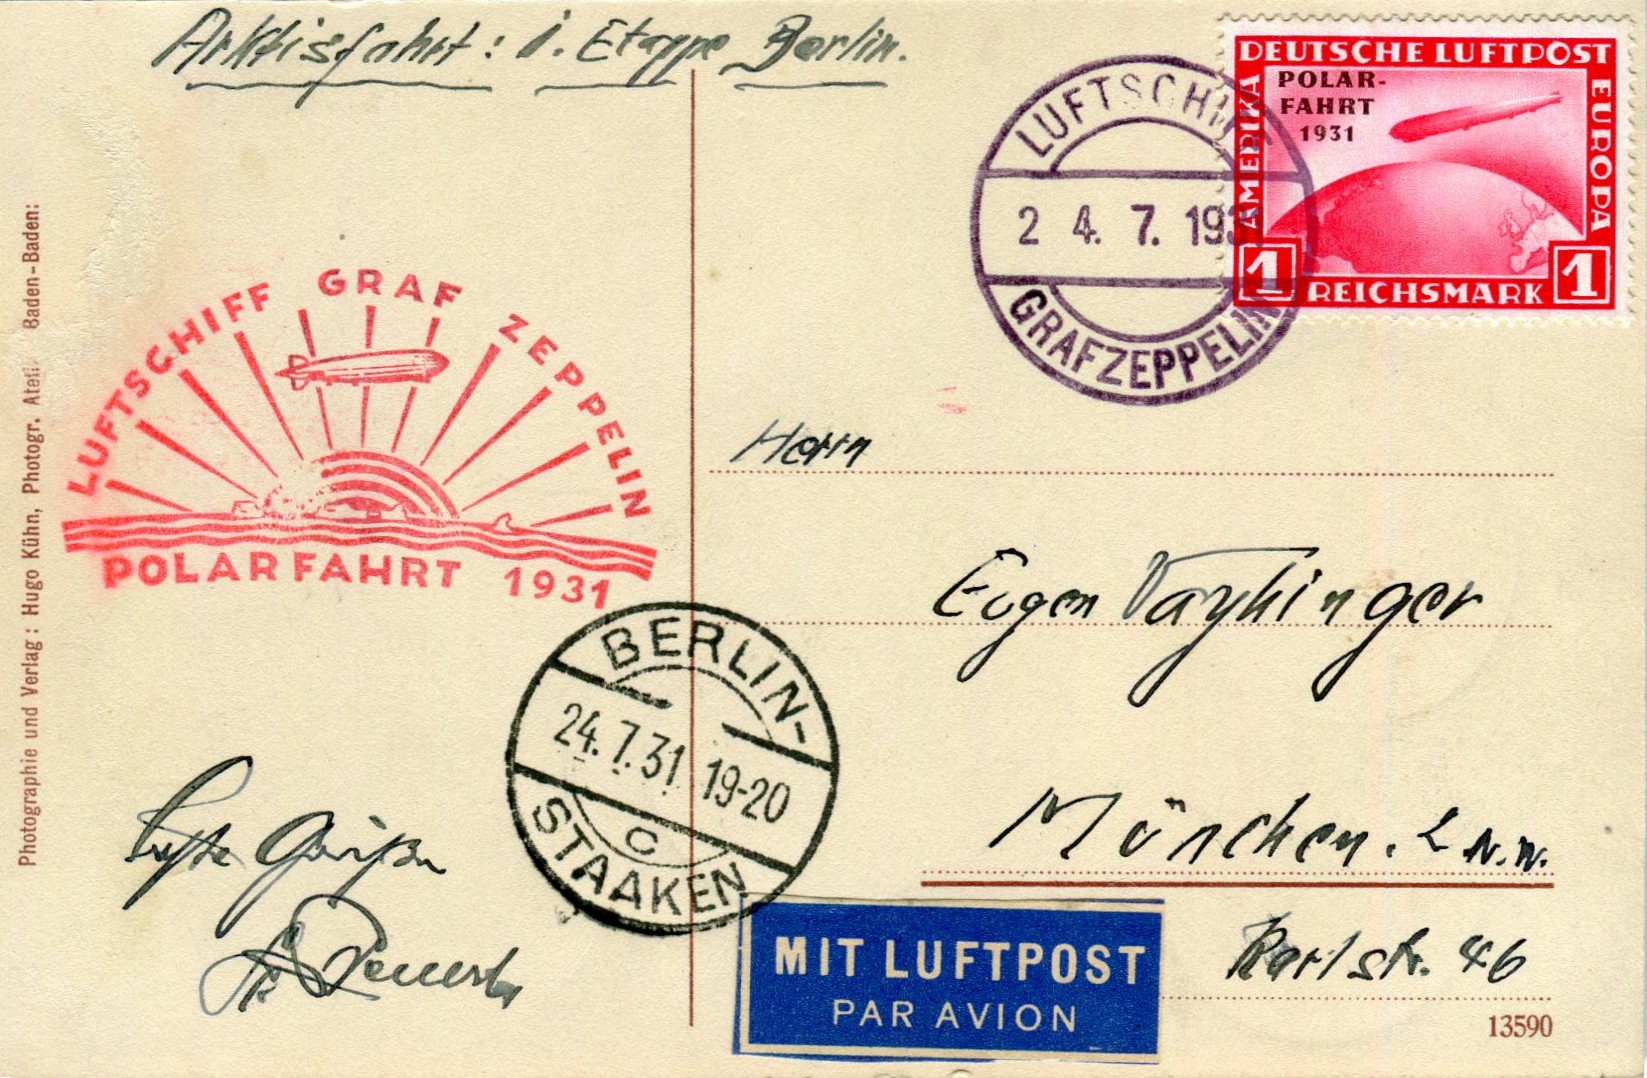 Arktisfahrt: 1. Etappe Berlin.
DEUTSCHE LUFTPOST
AMERIKA
EUROPA
POLAR-
FAHRT
1931
1 1
REICHSMARK
LUFTSCHIFF
2 4. 7. 1931
GRAF ZEPPELIN
Photographie und Verlag: Hugo Kühn, Photogr. Baden-Baden:
LUFTSCHIFF GRAF ZEPPELIN
POLARFAHRT 1931
Herrn
Eugen Vayhinger
München. 2 N.W.
Karlstr. 46
BERLIN-
24.7.31 19-20
c
STAAKEN
Grüße
MIT LUFTPOST
PAR AVION
13590